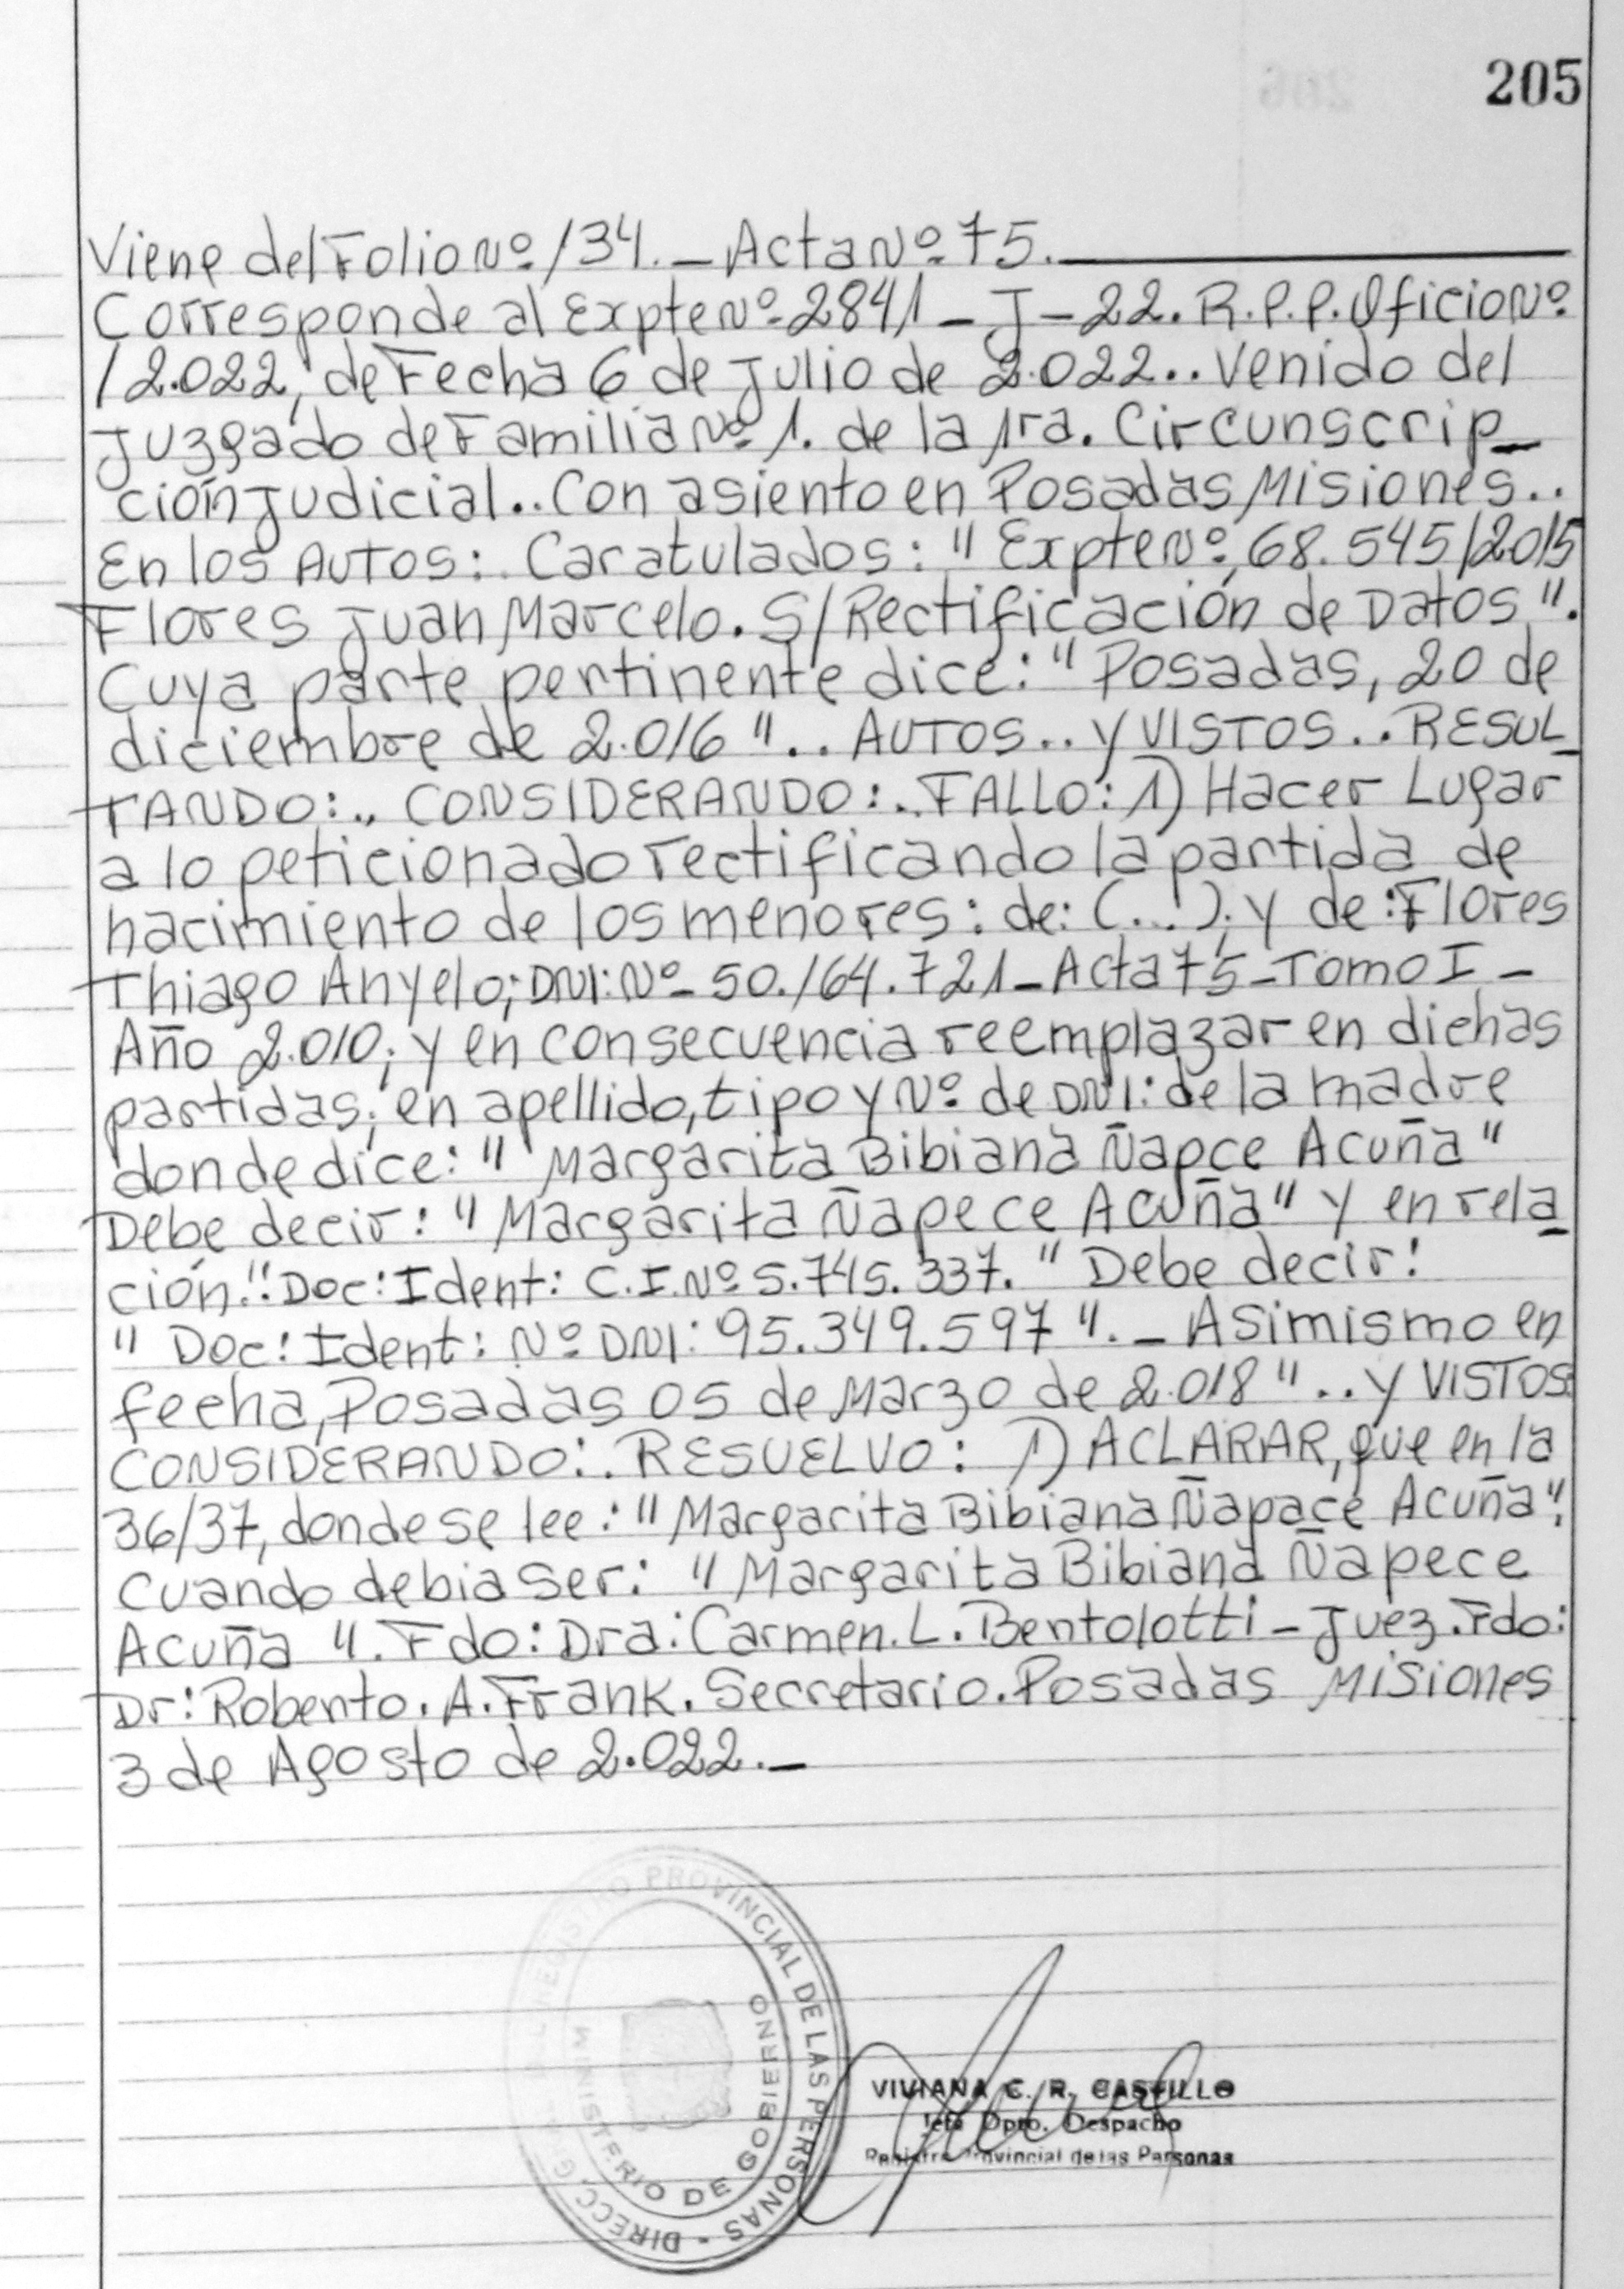 205
Viene del Folio Nº 134. _ Acta Nº 75.
Corresponde al Expte Nº 2841 _ J _ 22. R.P.P. Oficio Nº
/2.022, de Fecha 6 de Julio de 2.022.. Venido del
Juzgado de Familia Nº 1. de la 1ra. Circunscrip_
ción Judicial.. Con asiento en Posadas Misiones..
En los AUTOS: Caratulados: " Expte Nº 68.545/2015
Flores Juan Marcelo. S/Rectificación de Datos ".
Cuya parte pertinente dice: " Posadas, 20 de
diciembre de 2.016 ".. AUTOS.. y VISTOS.. RESUL_
TANDO:.. CONSIDERANDO:. FALLO: 1) Hacer Lugar
a lo peticionado rectificando la partida de
nacimiento de los menores: de: (...); y de: Flores
Thiago Anyelo; DNI: Nº _ 50.164.721 _ Acta 75 _ Tomo I _
Año 2.010; y en consecuencia reemplazar en dichas
partidas; en apellido, tipo y Nº de DNI: de la madre
donde dice: " Margarita Bibiana Ñapce Acuña "
Debe decir: " Margarita Ñapece Acuña " y en rela_
ción " Doc: Ident: C.I. Nº 5.745.337. " Debe decir:
" Doc: Ident: Nº DNI: 95.349.597 ". _ Asimismo en
fecha, Posadas 05 de Marzo de 2.018 ".. y VISTOS:
CONSIDERANDO:. RESUELVO: 1) ACLARAR, que en la
36/37, donde se lee: " Margarita Bibiana Ñapace Acuña ",
Cuando debia ser: " Margarita Bibiana Ñapece
Acuña ". Fdo: Dra: Carmen. L. Bentolotti _ Juez. Fdo:
Dr: Robento. A. Frank. Secretario. Posadas Misiones
3 de Agosto de 2.022. _
REGISTRO PROVINCIAL DE LAS PERSONAS - DIRECC. G
MINISTERIO DE GOBIERNO
VIVIANA C. R. CASTILLO
Jefa Dpto. Despacho
Registro Provincial de las Personas